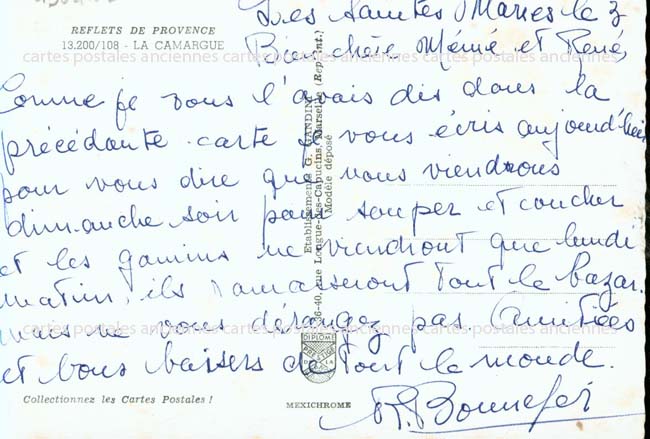 REFLETS DE PROVENCE
13.200/108 - LA CAMARGUE
Les Saintes Maries le 3
Bien chère Mémé et René,
cartes postales anciennes cartes postales anciennes cartes postales anciennes
Comme je vous l'avais dis dans la
précédante carte je vous écris aujourd'hui
pour vous dire que nous viendrons
dimanche soir pour souper et coucher
et les gamins ne viendront que lundi
matin, ils ramasseront tout le bazar.
mais ne vous dérangez pas Amitiées
cartes postales anciennes cartes postales anciennes cartes postales anciennes
et Bons baisers de tout le monde.
Etablissements G. GANDINI
36-40, rue Longue-des-Capucins, Marseille (Repr. int.)
Modèle déposé
DIPLOME
PRESTIGE
Collectionnez les Cartes Postales !
MEXICHROME